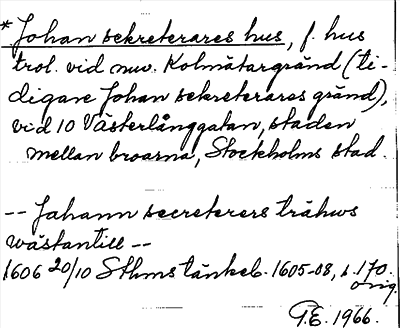 * Johan sekreterares hus, f. hus
trol. vid nuv. Kolmätargränd (ti-
digare Johan sekreterares gränd),
vid 10 Västerlånggatan, staden
mellan broarna, Stockholms stad.
-- Johann secreterers trähws
wästantill --
1606 20/10 Sthms tänkeb. 1605-08, s. 170.
orig.
P.E. 1966.